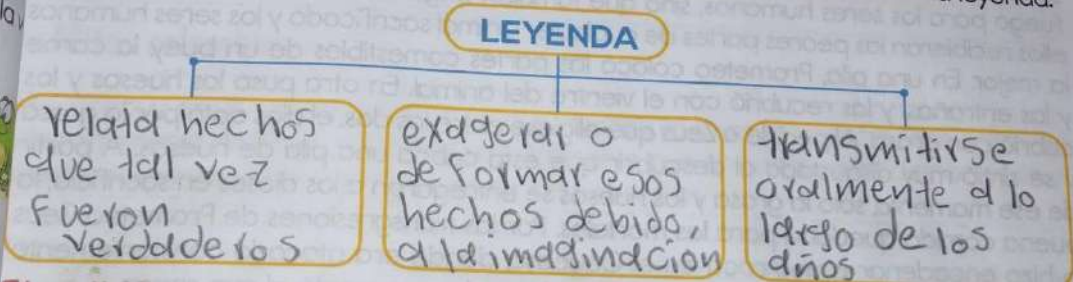 LEYENDA
relata hechos
que tal vez
fueron
verdaderos
exagerar o
deformar esos
hechos debido,
a la imaginacion
transmitirse
oralmente a lo
largo de los
años